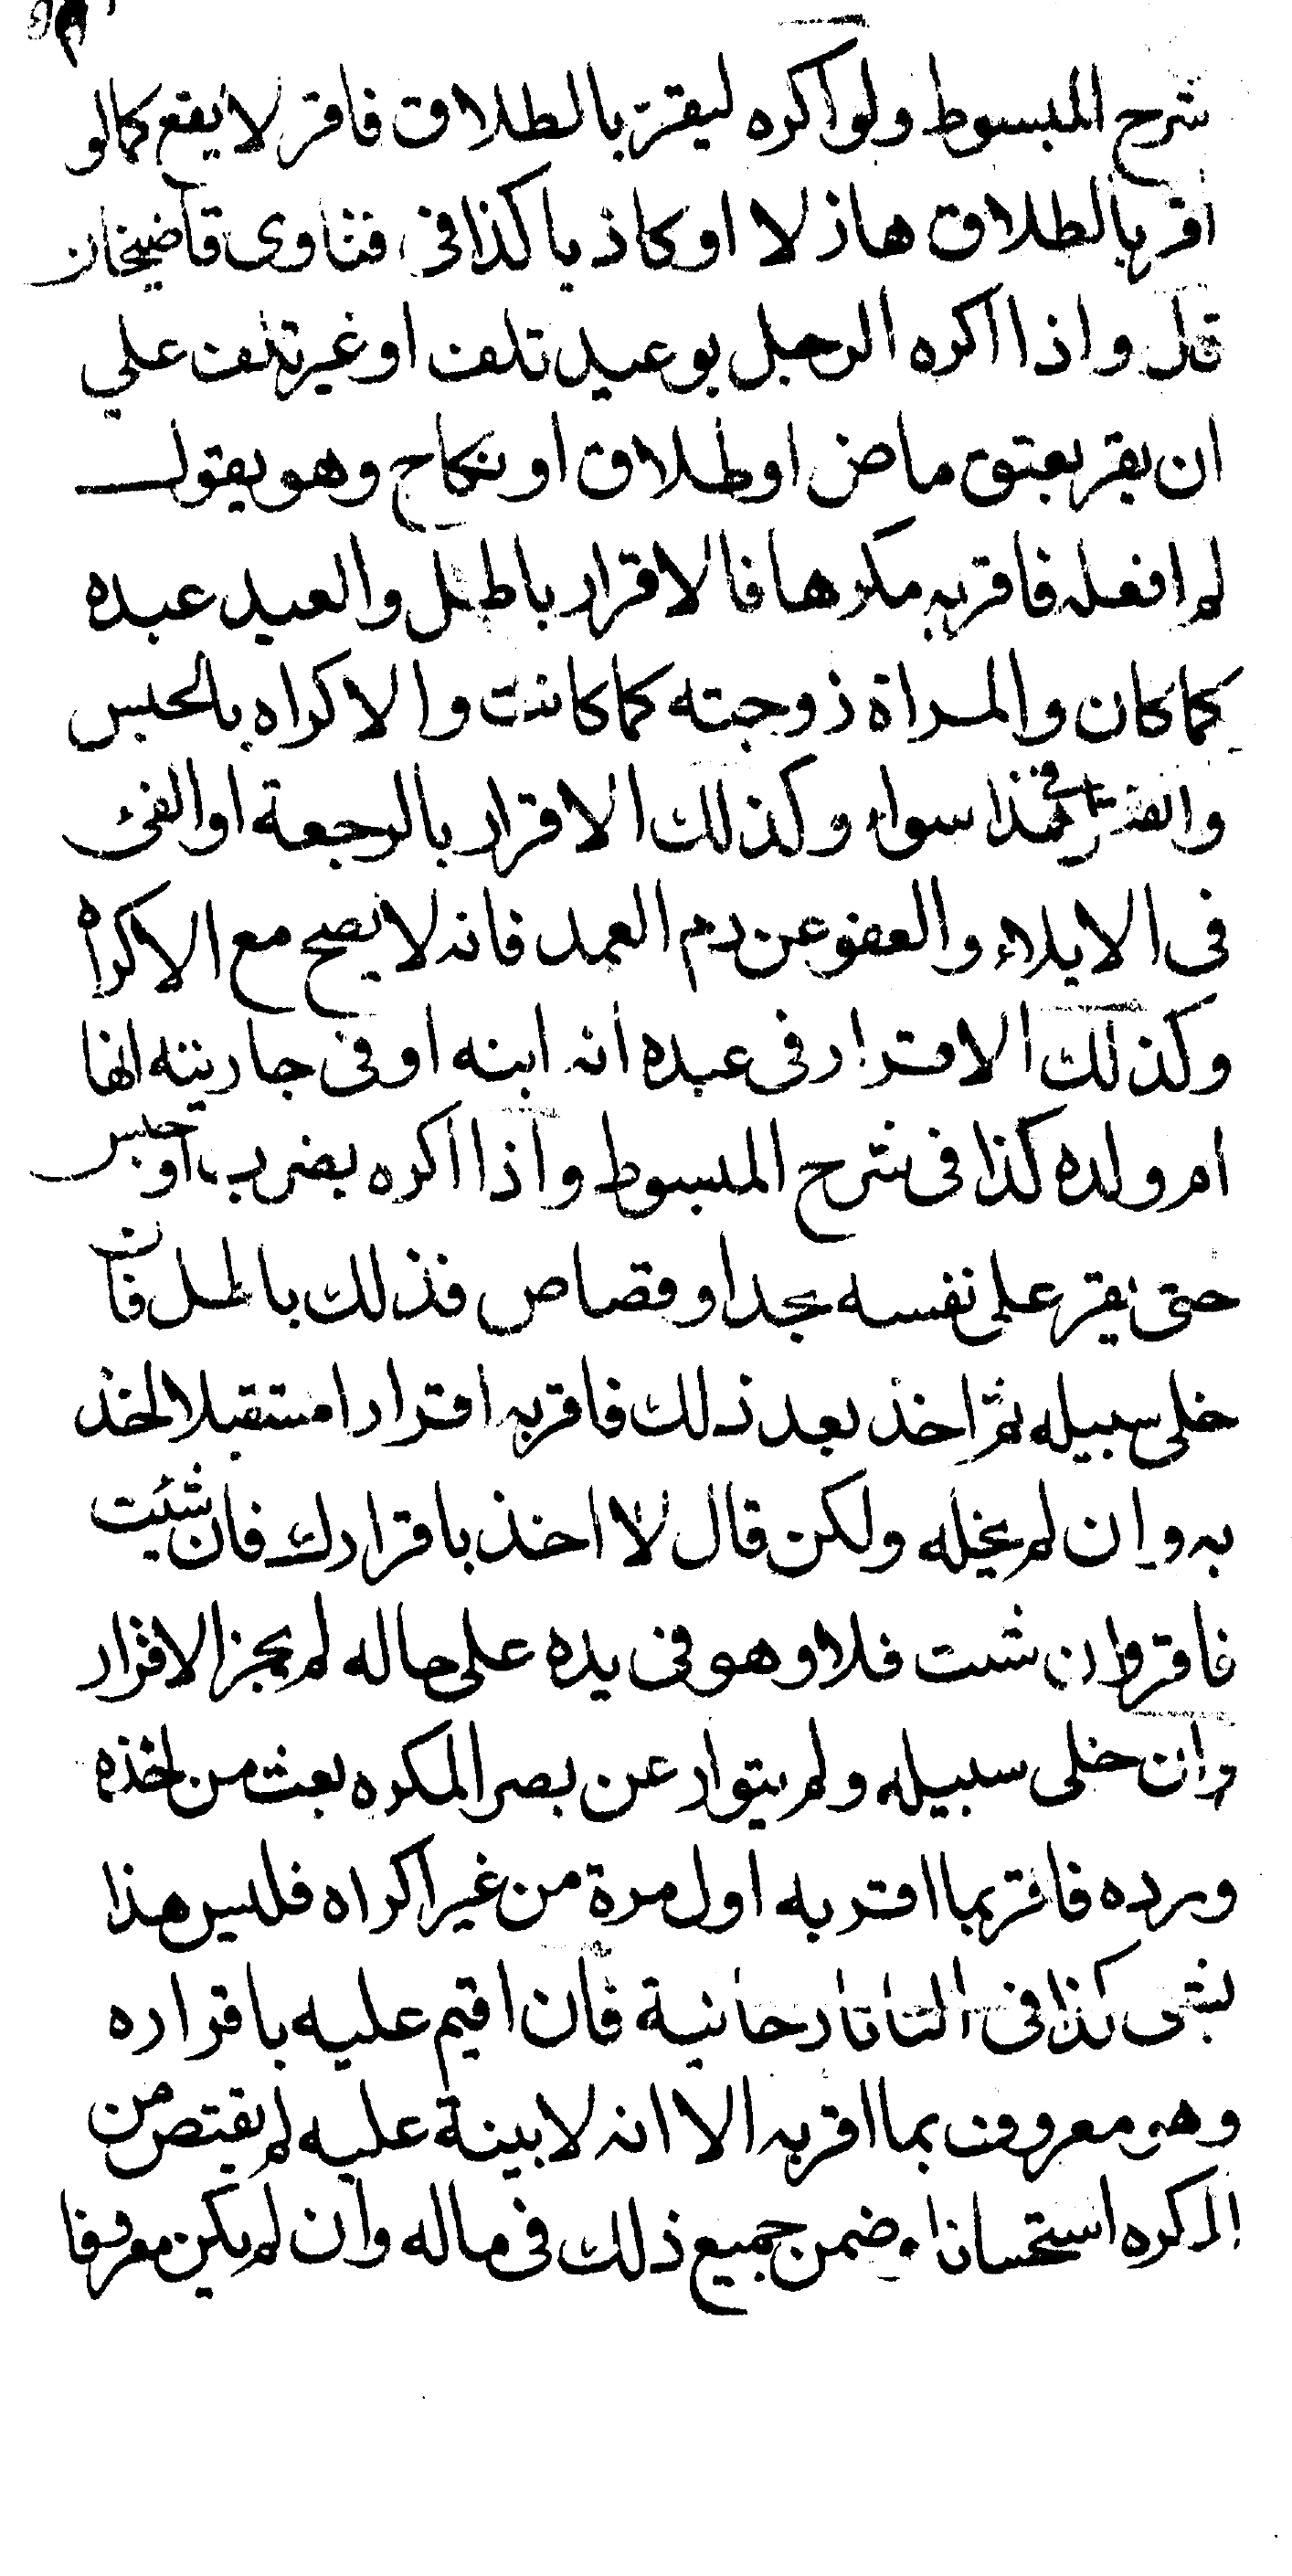 شرح المبسوط ولو اكره ليقر بالطلاق فاقر لا يقع كما لو
اقر بالطلاق هاذلا او كاذبا كذا فى فتاوى قاضيخان
قال واذا اكره الرجل بوعيد تلف او غير تلف علي
ان يقر بعتق ماض او طلاق او نكاح وهو يقول
لم افعله فاقر به مكرها فالاقرار باطل والعبد عبده
كما كان والمراة ذوجته كما كانت والاكراه بالحبس
والقتل فى هذا سواء وكذلك الاقرار بالرجعة او الفئ
فى الايلاء والعفو عن دم العمد فانه لا يصح مع الاكراه
وكذلك الاقرار فى عبده انه ابنه او فى جاريته انها
ام ولده كذا فى شرح المبسوط واذا اكره بضرب او حبس
حتى يقر على نفسه بحد او قصاص فذلك باطل فان
خلى سبيله ثم اخذ بعد ذلك فاقر به اقرارا مستقبلا اخذ
به وان لم يخله ولكن قال لا اخذ باقرارك فان شئت
فاقر وان شئت فلا وهو فى يده على حاله لم يجز الاقرار
وان خلى سبيله ولم يتوار عن بصر المكره بعث من اخذه
ورده فاقر بما اقر به اول مرة من غير اكراه فليس هذا
بشى كذا فى التاتارخانية فان اقيم عليه باقراره
وهو معروف بما اقر به الا انه لا بينة عليه لم يقتص من
المكره استحسانا وضمن جميع ذلك فى ماله وان لم يكن معروفا